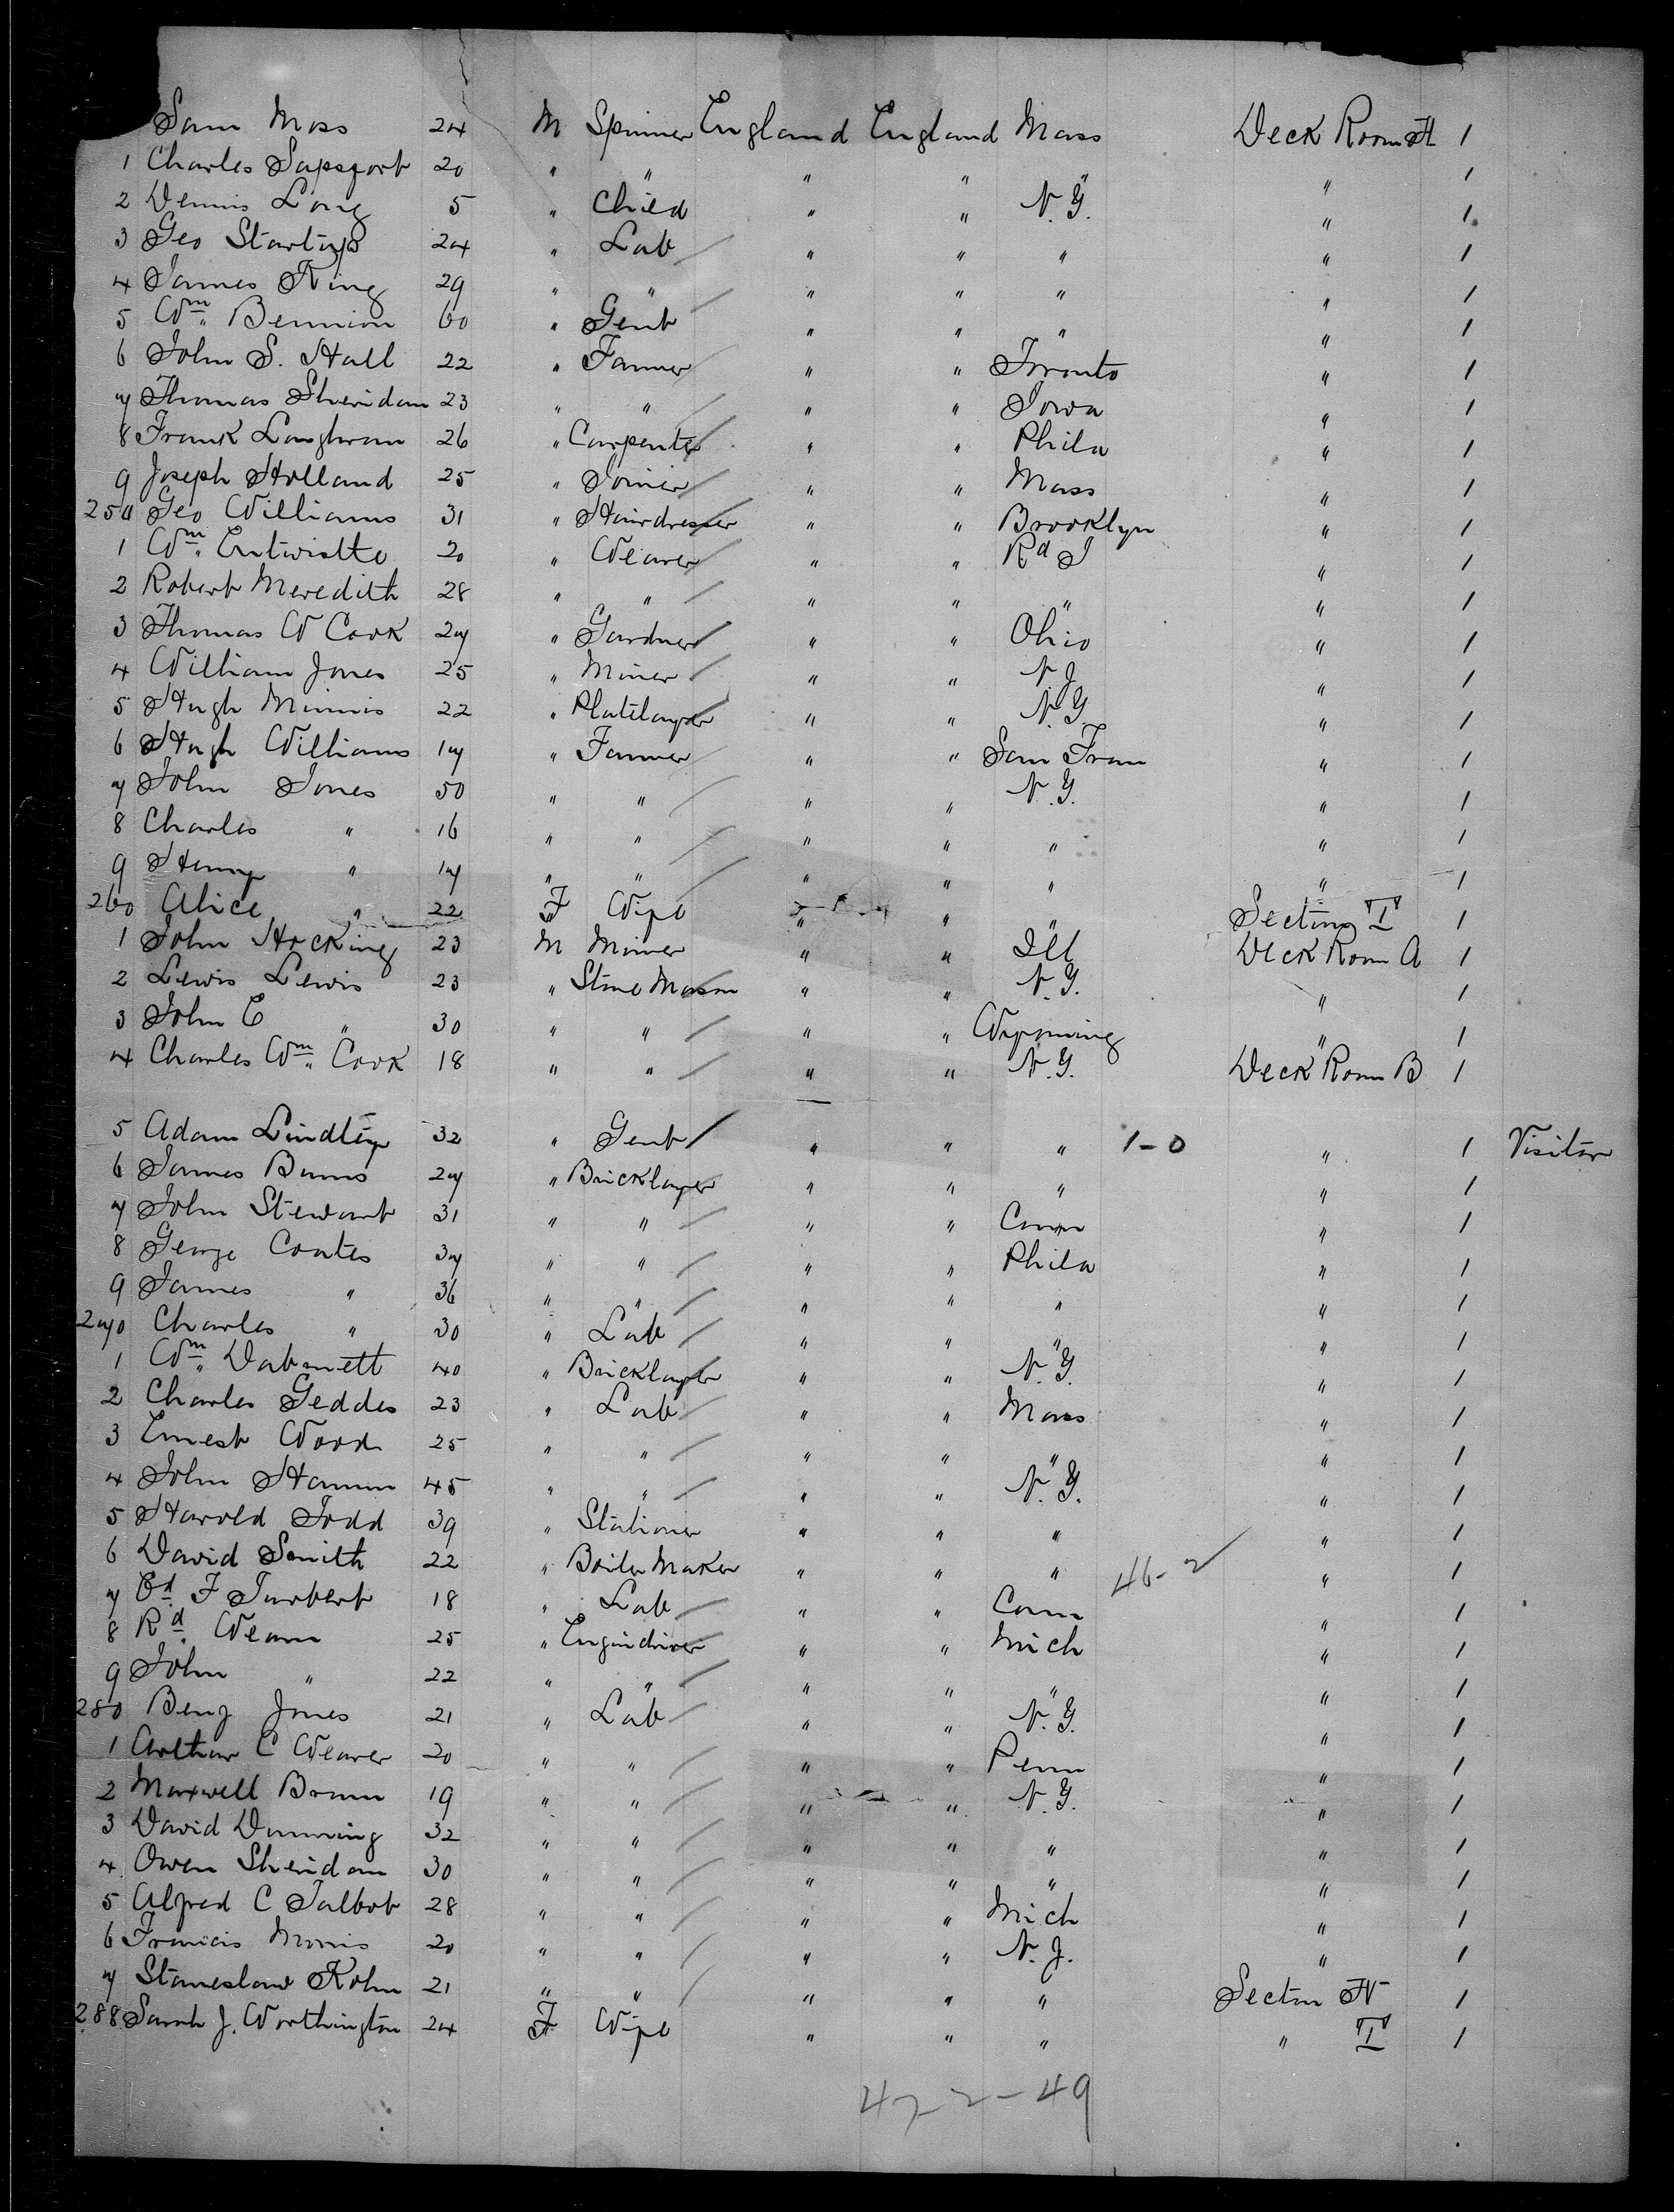 Sam Moss 24 M Spinner England England Mass Deck Room A 1
1 Charles Sapsfort 20 " " " " " " 1
2 Dennis Long 5 " Child " " N.Y. " 1
3 Geo Startup 24 " Lab " " " " 1
4 James King 29 " " " " " " 1
5 Wm Bennion 60 " Gent " " " " 1
6 John S. Hall 22 " Farmer " " Toronto " 1
7 Thomas Sheridan 23 " " " " Iowa " 1
8 Frank Loughran 26 " Carpenter " " Phila " 1
9 Joseph Holland 25 " Joiner " " Mass " 1
250 Geo Williams 31 " Hairdresser " " Brooklyn " 1
1 Wm Entwistle 20 " Weaver " " Rd I " 1
2 Robert Meredith 28 " " " " " " 1
3 Thomas W Cook 27 " Gardner " " Ohio " 1
4 William Jones 25 " Miner " " N J " 1
5 Hugh Minnis 22 " Platelayer " " N.Y. " 1
6 Hugh Williams 17 " Farmer " " San Fran " 1
7 John Jones 50 " " " " N.Y. " 1
8 Charles " 16 " " " " " " 1
9 Henry " 14 " " " " " " 1
260 Alice " 22 F Wife " " " Section I 1
1 John Hocking 23 M Miner " " Ill Deck Room A 1
2 Lewis Lewis 23 " Stone Mason " " N.Y. " 1
3 John E " 30 " " " " Wyoming " 1
4 Charles Wm Cook 18 " " " " N.Y. Deck Room B 1
5 Adam Lindley 32 " Gent " " " 1-0 " 1 Visitor
6 James Burns 27 " Bricklayer " " " " 1
7 John Stewart 31 " " " " Conn " 1
8 George Coates 37 " " " " Phila " 1
9 James " 36 " " " " " " 1
270 Charles " 30 " Lab " " " " 1
1 Wm Dabnett 40 " Bricklayer " " N.Y. " 1
2 Charles Geddes 23 " Lab " " Mass " 1
3 Ernest Wood 25 " " " " " " 1
4 John Hannon 45 " " " " N.Y. " 1
5 Harold Todd 39 " Stationer " " " " 1
6 David Smith 22 " Boiler Maker " " " 46-2 " 1
7 Ed F Turbert 18 " Lab " " Conn " 1
8 Rd Wearn 25 " Engindriver " " Mich " 1
9 John " 22 " " " " " " 1
280 Benj Jones 21 " Lab " " N.Y. " 1
1 Arthur C Weaver 20 " " " " Penn " 1
2 Maxwell Brown 19 " " " " N.Y. " 1
3 David Dunning 32 " " " " " " 1
4 Owen Sheridan 30 " " " " " " 1
5 Alfred C Talbot 28 " " " " Mich " 1
6 Francis Morris 20 " " " " N.J. " 1
7 Staneslaw Kohn 21 " " " " " Section 1
288 Sarah J. Worthington 24 F Wife " " " " I 1
47 2-49